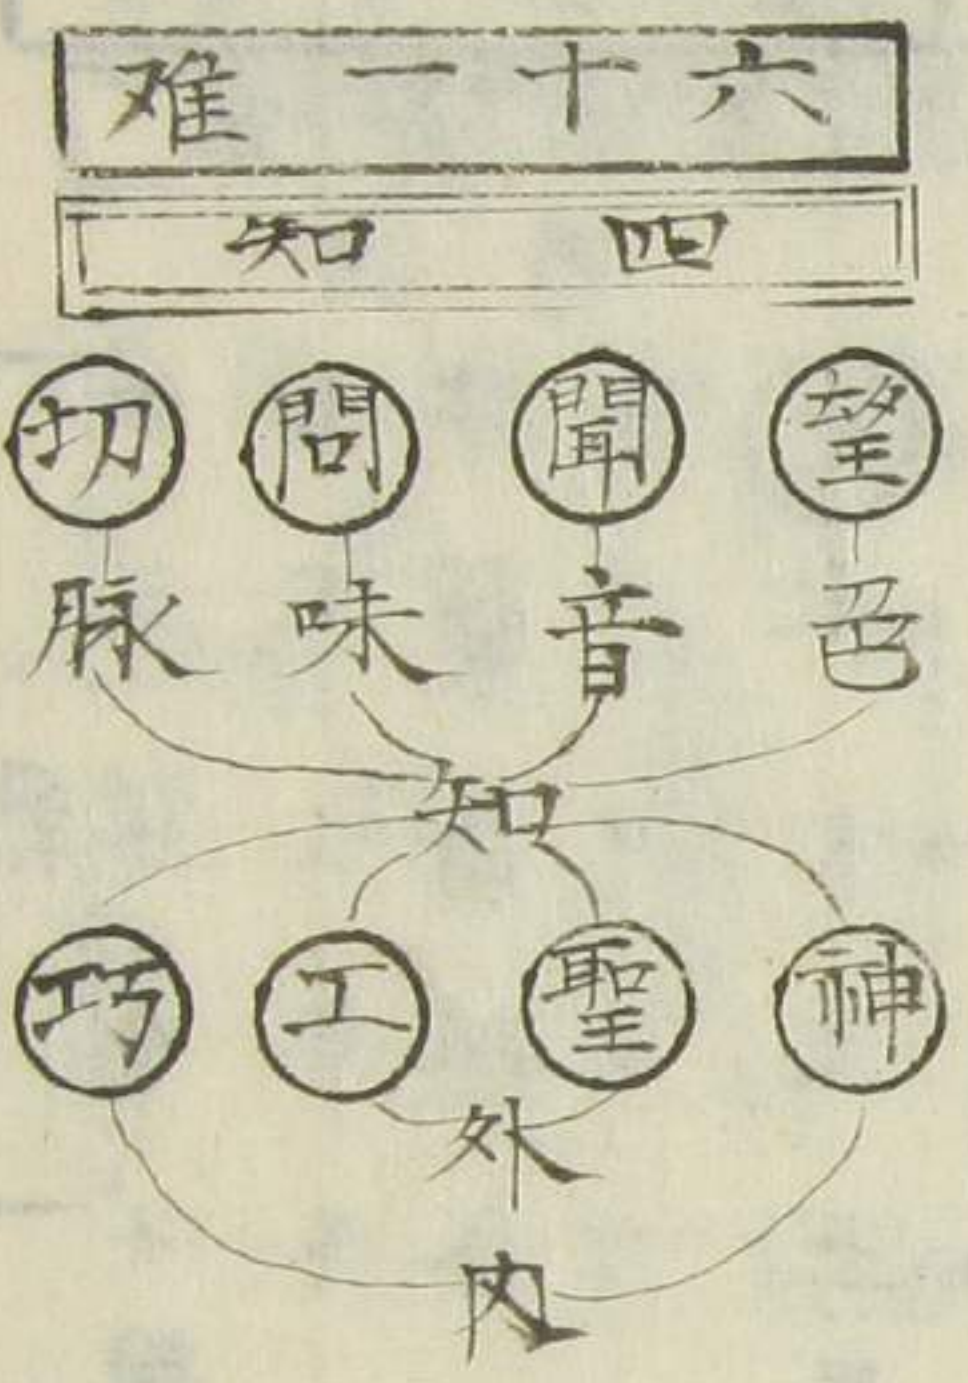 六十一难
四知
望聞問切
色音味脉
知
神聖工巧
外
内